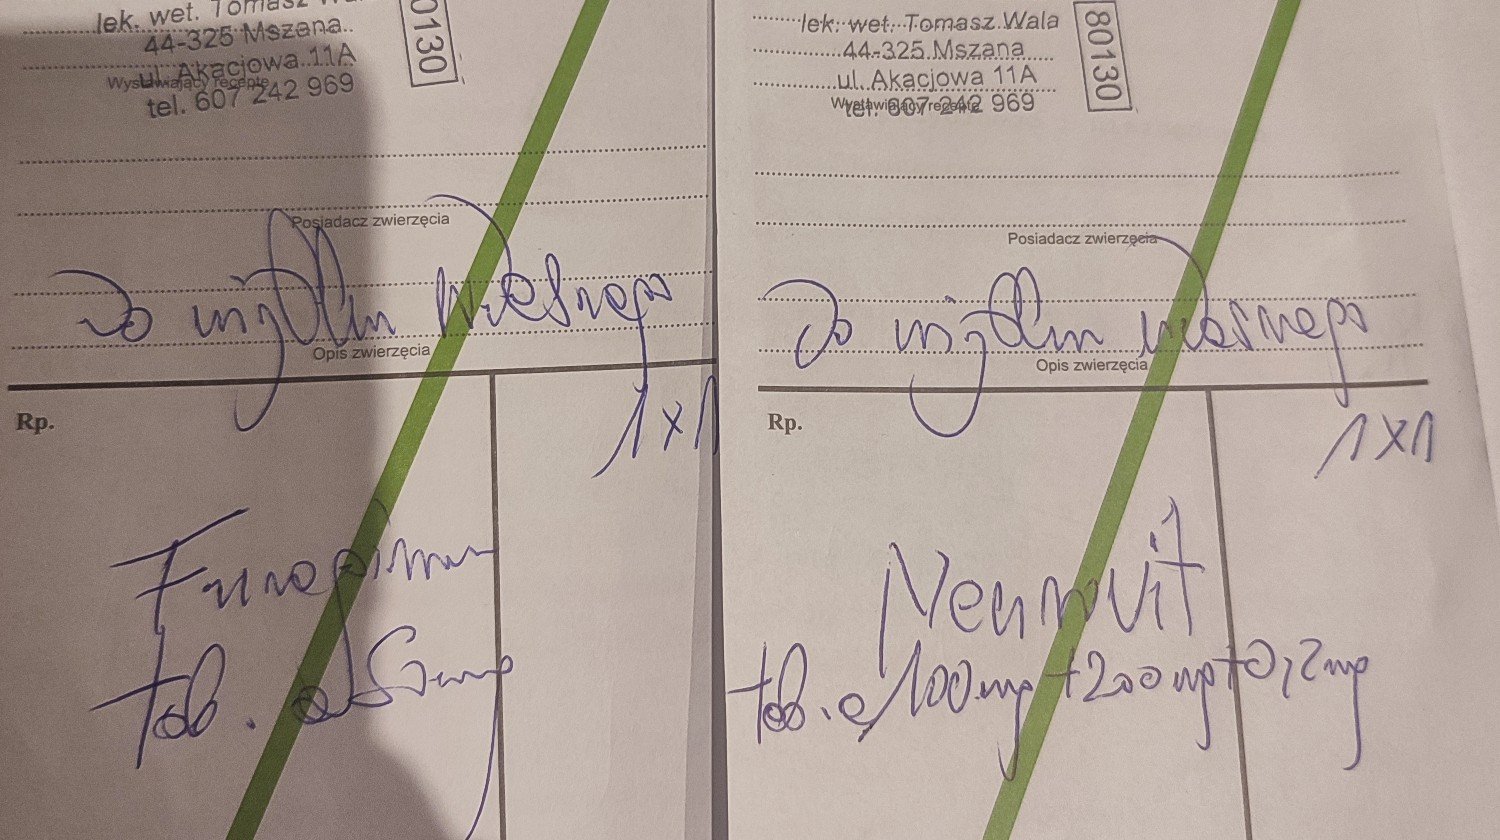 lek. wet. Tomasz W
44-325 Mszana
ul. Akacjowa 11A
Wystawiający receptę
tel. 607 242 969
0130
Posiadacz zwierzęcia
Do użytku własnego
Opis zwierzęcia
Rp.
1x1
Furaginum
tab. a 50mg
lek. wet. Tomasz Wala
44-325 Mszana
ul. Akacjowa 11A
Wystawiający receptę
tel. 607 242 969
80130
Posiadacz zwierzęcia
Do użytku własnego
Opis zwierzęcia
Rp.
1x1
Neurovit
tab. a 100mg+200mg+0,2mg